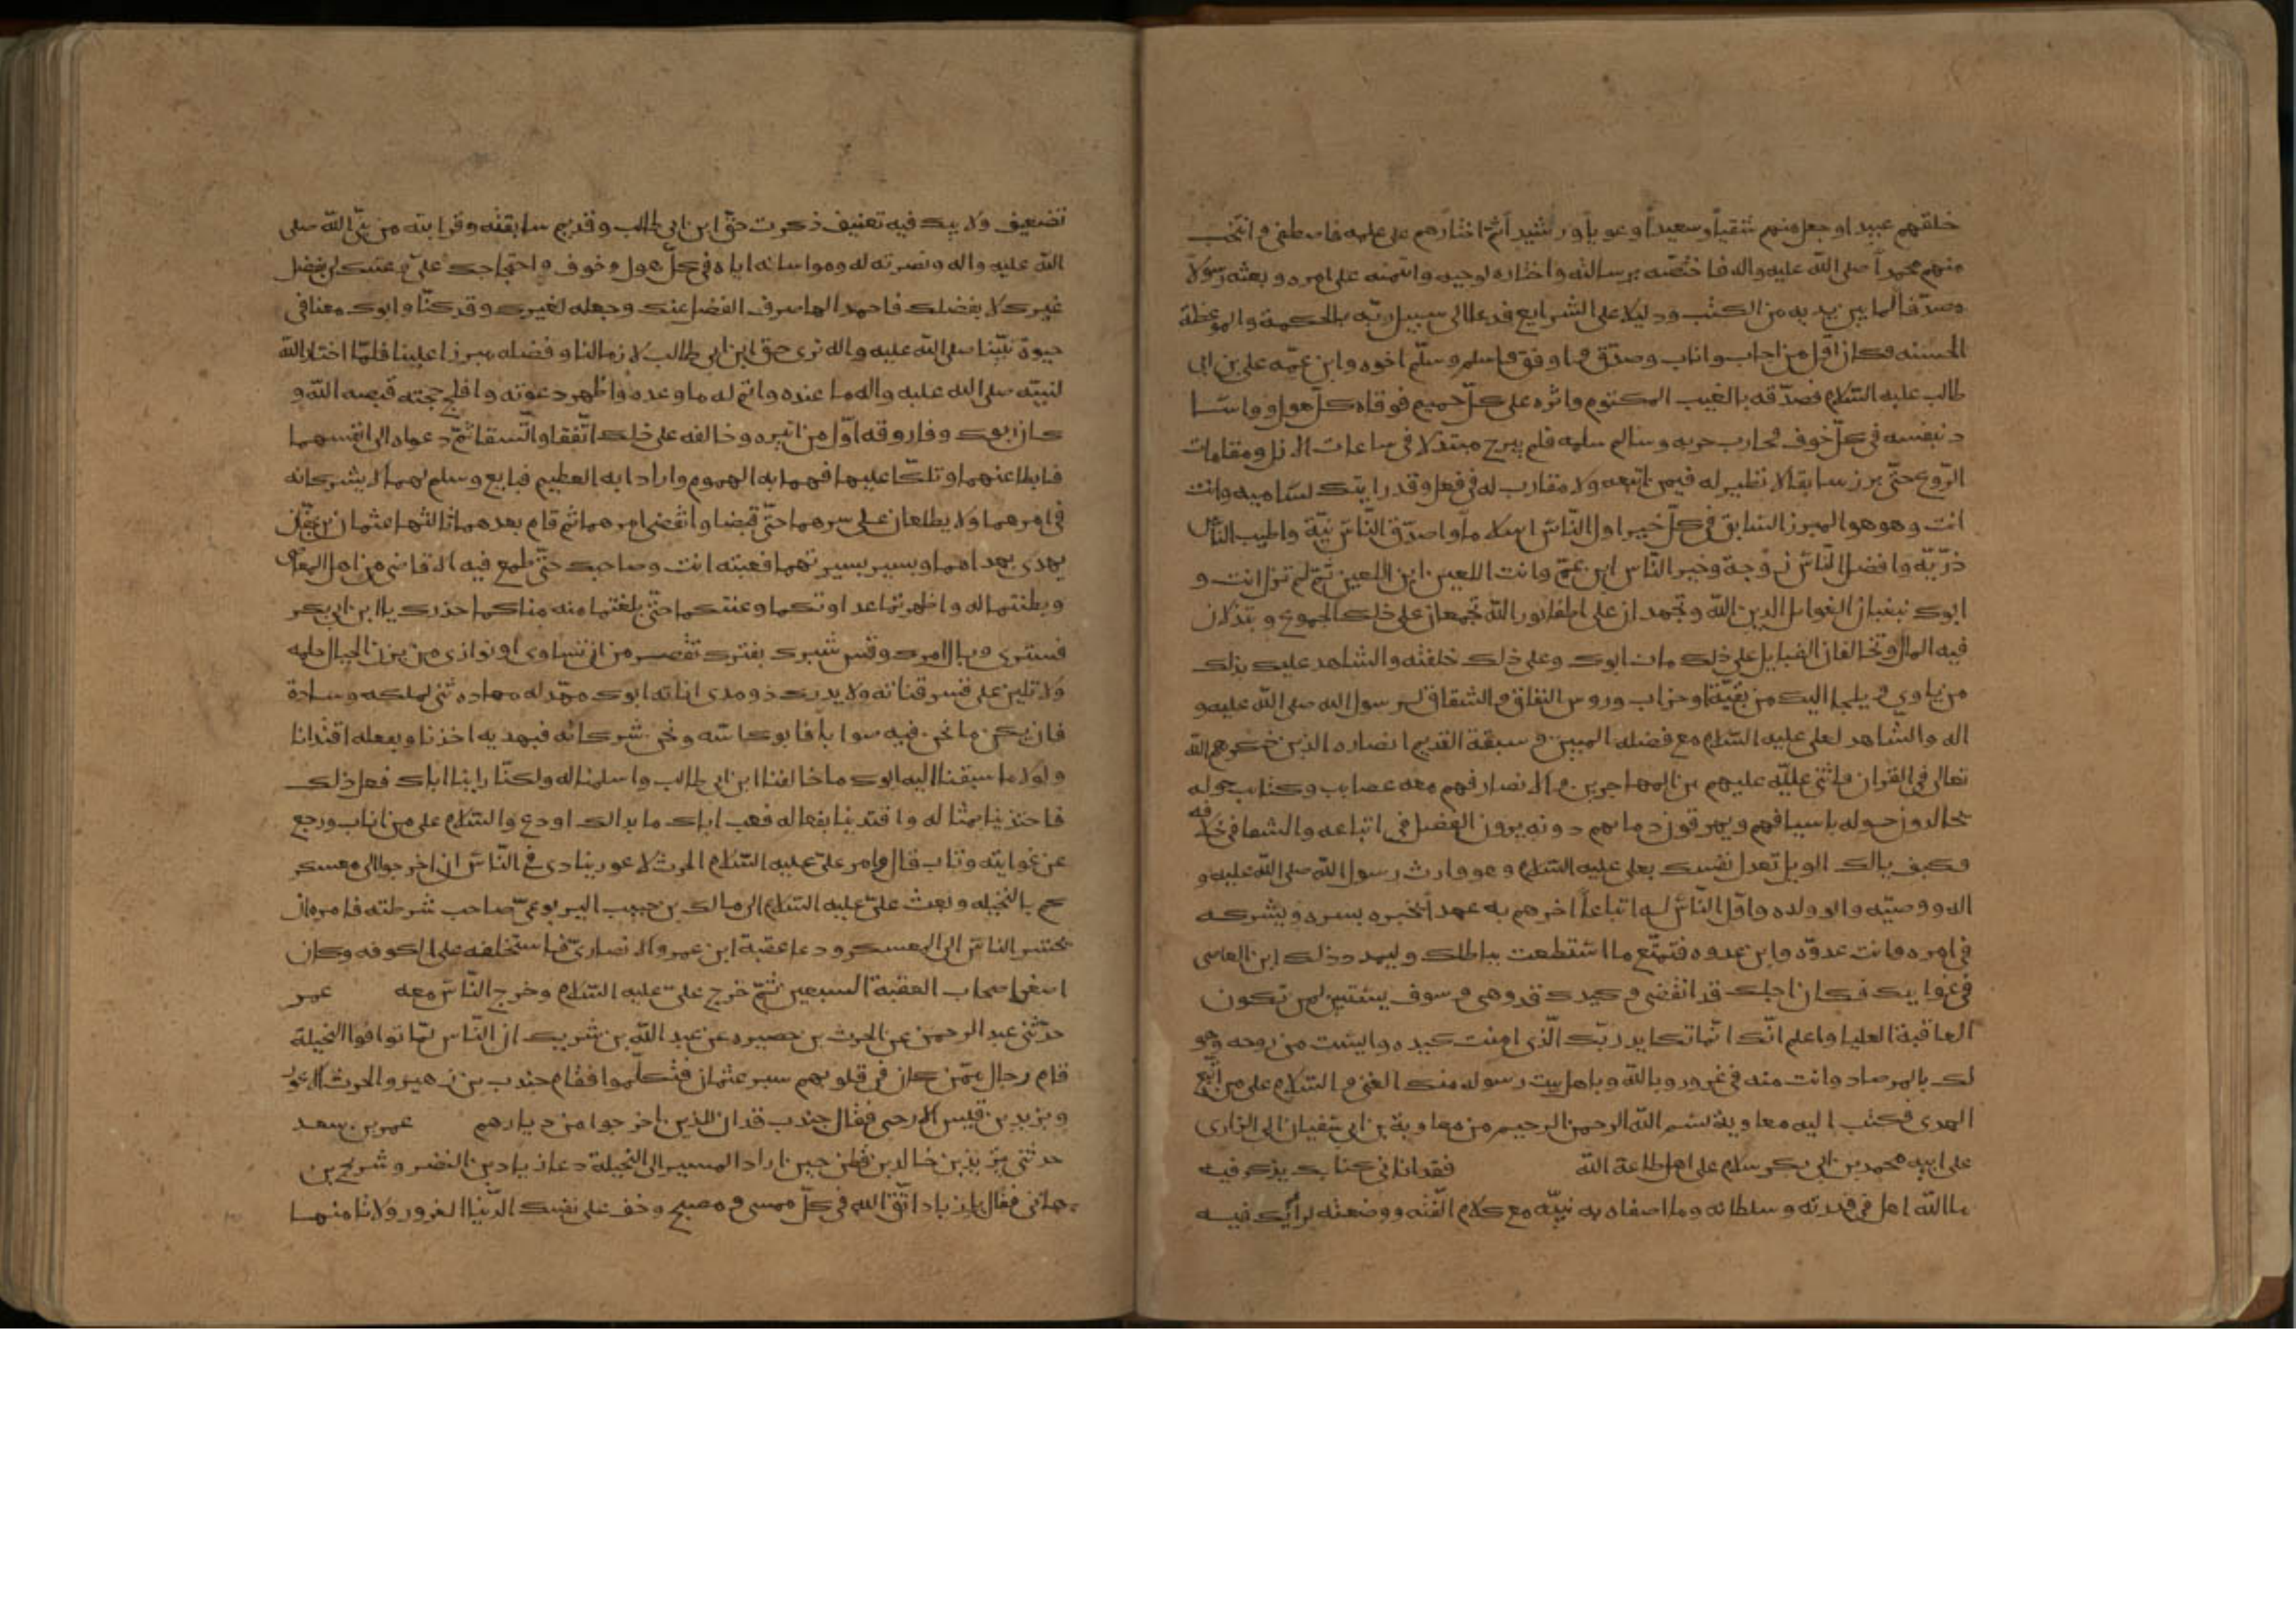 خلقهم عبيدا وجعل منهم شقياً وسعيداً وغوياً ورشيداً ثم اختارهم على علمه فاصطفى وانتخب
منهم محمداً صلى الله عليه واله فاختصّه برسالته واختاره لوحيه وائتمنه على امره وبعثه رسولا
مصدّقا لما بين يديه من الكتب ودليلا على الشرايع فدعا الى سبيل ربّه بالحكمة والموعظة
الحسنه فكان اوّل من اجاب واناب وصدّق ووافق واسلم وسلّم اخوه وابن عمّه على بن ابى
طالب عليه السّلام فصدّقه بالغيب المكتوم واثره على كلّ حميم فوقاه كلّ هول وواسا
ه بنفسه فى كلّ خوف فحارب حربه وسالم سلمه فلم يبرح مبتذلا فى ساعات الازل ومقامات
الرّوع حتّى برز سابقا لا نظير له فيمن اتبعه ولا مقارب له فى فعله وقد رايتك تساميه وانت
انت وهو هو المبرز السّابق فى كلّ خير اول النّاس اسلاماً واصدق النّاس نيّة واطيب النّاس
ذرّيّة وافضل النّاس زوجة وخير النّاس ابن عمّ وانت اللعين ابن اللعين ثمّ لم تزل انت و
ابوك تبغيان الغوايل لدين الله وتجهدان على اطفا نور الله تجمعان على ذلك الجموع وتبذلان
فيه المال وتحالفان القبايل على ذلك مات ابوك وعلى ذلك خلفته والشاهد عليك بذلك
من ياوي ويلجا اليك من بقيّة الاحزاب وروس النفاق والشقاق لرسول الله صلى الله عليه و
اله والشاهد لعلى عليه السّلام مع فضله المبين وسبقة القديم انصاره الذين ذكرهم الله
تعالى فى القران فاثنى عليهم من المهاجرين والانصار فهم معه عصايب وكتايب حوله
يجالدون حوله باسيافهم ويهرقون دماهم دونه يرون الفضل فى اتباعه والشقا فى خلافه
فكيف يالك الويل تعدل نفسك بعلى عليه السّلام وهو وارث رسول الله صلى الله عليه و
اله ووصيّه وابو ولده واوّل النّاس له اتباعاً واخرهم به عهداً يخبره بسره ويشركه
فى امره وانت عدوّه وابن عدوه فتمتّع ما استطعت بباطلك وليمدد ذلك ابن العاصى
فى غوايتك فكان اجلك قد انقضى وكيدك قد وهى وسوف يستبين لمن تكون
العاقبة العليا واعلم انّك انّما تكايد ربّك الّذى امنت كيده وايئست من روحه وهو
لك بالمرصاد وانت منه فى غرور وبالله وباهل بيت رسوله منك الغنى والسّلام على من اتّبع
الهدى فكتب اليه معاوية بسم الله الرحمن الرحيم من معاوية بن ابى سفيان الى الزارى
على ابيه محمد بن ابى بكر سلام على اهل طاعة الله فقد اتانى كتابك يذكر فيه
ما الله اهل فى قدرته وسلطانه وما اصفاه به نبيّه مع كلام الّفته ووضعته لرأيك فيه
تضعيف ولابيك فيه تعنيف ذكرت حقّ ابن ابى طالب وقديم سابقته وقرابته من نبىّ الله صلى
الله عليه واله ونصرته له ومواساته اياه فى كلّ هول وخوف واحتجاجك علىّ بفضل
غيرك لا بفضلك فاحمد الها صرف الفضل عنك وجعله لغيرك وقد كنّا وابوك معنا فى
حيوة نبيّنا صلى الله عليه واله نرى حق ابن ابى طالب لازما لنا وفضله مبرزا علينا فلمّا اختار الله
لنبيّه صلى الله عليه واله ما عنده واتم له ما وعده واظهر دعوته وافلج حجته قبضه الله و
كان ابوك وفاروقه اوّل من ابتزه وخالفه على ذلك اتّفقا واتّسقا ثمّ دعواه الى انفسهما
فابطا عنهما وتلكّا عليهما فهمّا به الهموم وارادا به العظيم فبايع وسلم لهما لا يشركانه
فى امرهما ولا يطلعانه على سرهما حتّى قبضا وانقضى امرهما ثم قام بعدهما ثالثهما عثمان بن عفّان
يهدى بهداهما ويسير بسيرتهما فعبته انت وصاحبك حتّى طمع فيه الاقاصى من اهل المعاصى
وبطنتما له واظهرتما عداوتكما وغشكما حتّى بلغتما منه مناكما فخذ حذرك يا ابن ابى بكر
فسترى وبال امرك وقس شبرك بفترك تقصر من ان تساوى او توازى من يزن الجبال حلمه
ولا تلين على قسر قناته ولا يدرك ذو مدى اناته ابوك مهّد له مهاده وبنى لملكه وساده
فان يكن ما نحن فيه صوابا فابوك اسّه ونحن شركائه فبهديه اخذنا وبفعله اقتدينا
ولولا ما سبقنا اليه ابوك ما خالفنا ابن ابى طالب واسلمنا له ولكنّا راينا اباك فعل ذلك
فاحتذينا بمثاله واقتدينا بفعاله فعب اباك ما بدا لك او دع والسّلام على من اناب ورجع
عن غوايته وتاب قال وامر علىّ عليه السّلام الحرث الاعور ينادى فى النّاس ان اخرجوا الى معسكر
كم بالنخيله وبعث علىّ عليه السّلام الى مالك بن حبيب اليربوعىّ صاحب شرطته فامره ان
يحشر الناس الى المعسكر ودعا عقبة ابن عمرو الانصارىّ فاستخلفه على الكوفه وكان
اصغر اصحاب العقبة السبعين ثمّ خرج علىّ عليه السّلام وخرج النّاس معه عمر
حدّثنى عبد الرحمن عن الحرث بن حصيره عن عبد الله بن شريك ان النّاس لمّا توافوا النخيلة
قام رجال ممّن كان فى قلوبهم سير عثمان فتكلّموا فقام جندب بن زهير والحرث الاعور
ويزيد بن قيس الارحبى فقال جندب قد ان للذين اخرجوا من ديارهم عمر بن سعد
حدثنى يزيد بن خالد بن قطن حين اراد المسير الى النخيلة دعا زياد بن النضر وشريح بن
هانى فقال يا زياد اتّق الله فى كلّ ممسى ومصبح وخف على نفسك الدّنيا الغرور ولا تامنها